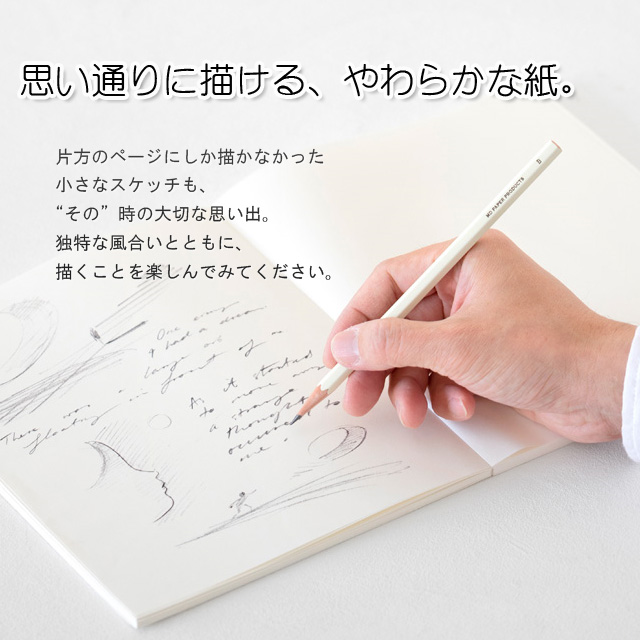 思い通りに描ける、やわらかな紙。
片方のページにしか描かなかった
小さなスケッチも、
“その” 時の大切な思い出。
独特な風合いとともに、
描くことを楽しんでみてください。
MD PAPER PRODUCTS B
One day
I had a dream
large as
There was
floating in front of me
As it started
to
a strange
thought
occurred to
me.